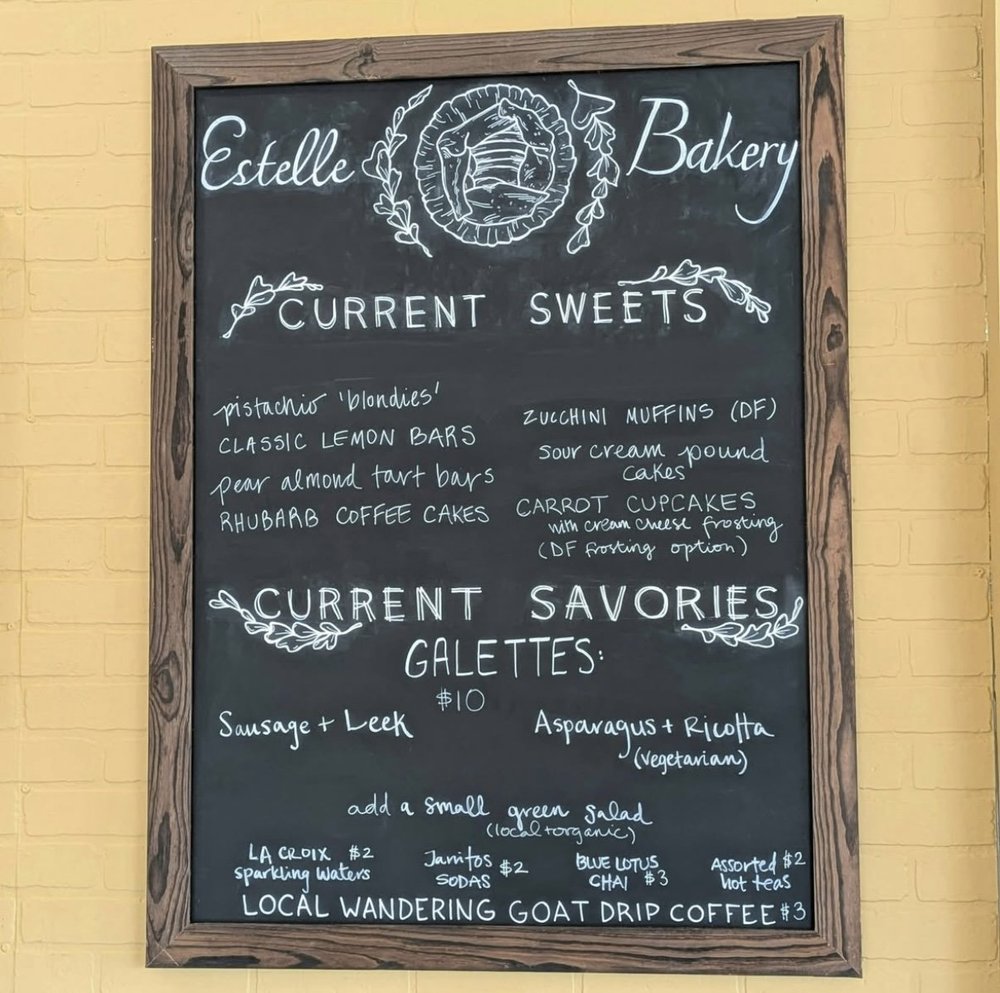 Estelle Bakery
CURRENT SWEETS
pistachio 'blondies'
CLASSIC LEMON BARS
pear almond tart bars
RHUBARB COFFEE CAKES
ZUCCHINI MUFFINS (DF)
sour cream pound
cakes
CARROT CUPCAKES
with cream cheese frosting
(DF frosting option)
CURRENT SAVORIES
GALETTES:
$10
Sausage + Leek
Asparagus + Ricotta
(vegetarian)
add a small green salad
(local + organic)
LA CROIX $2
sparkling waters
Jarritos
SODAS $2
BLUE LOTUS
CHAI $3
Assorted $2
hot teas
LOCAL WANDERING GOAT DRIP COFFEE $3